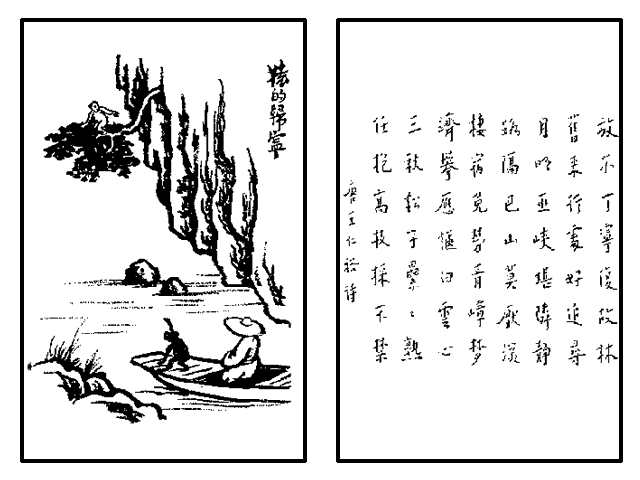 猿的歸寧
放尔丁寧復故林
舊来行處好追尋
月明巫峽堪憐静
路隔巴山莫厭深
棲宿免勞青嶂梦
躋攀應愜白雲心
三秋松子纍々熟
任抱高枝採不禁
唐王仁裕詩